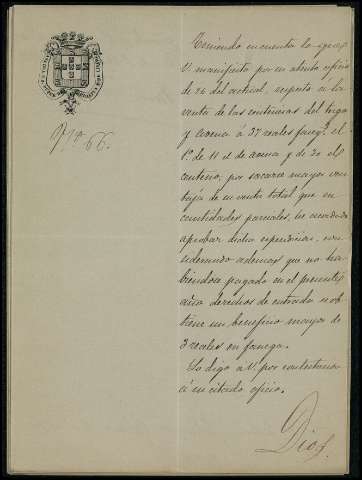 Nº 66.
Teniendo en cuenta lo que
V. manifiesta por su atento oficio
de 26 del actual, respecto a la
venta de las centenas del trigo
y avena á 37 reales faneg.ª el
1º de 11 el de avena y de 20 el
centeno, por sacarse mayor ven
taja de su venta total que en
cantidades parciales, he acordado
aprobar dicha espendicion, con
siderando ademas que no ha
biendose pagado en el presente
año derechos de entrada se ob
tiene un beneficio mayor de
3 reales en fanega.
Lo digo a V. por contestacion
á su citado oficio.
Dios